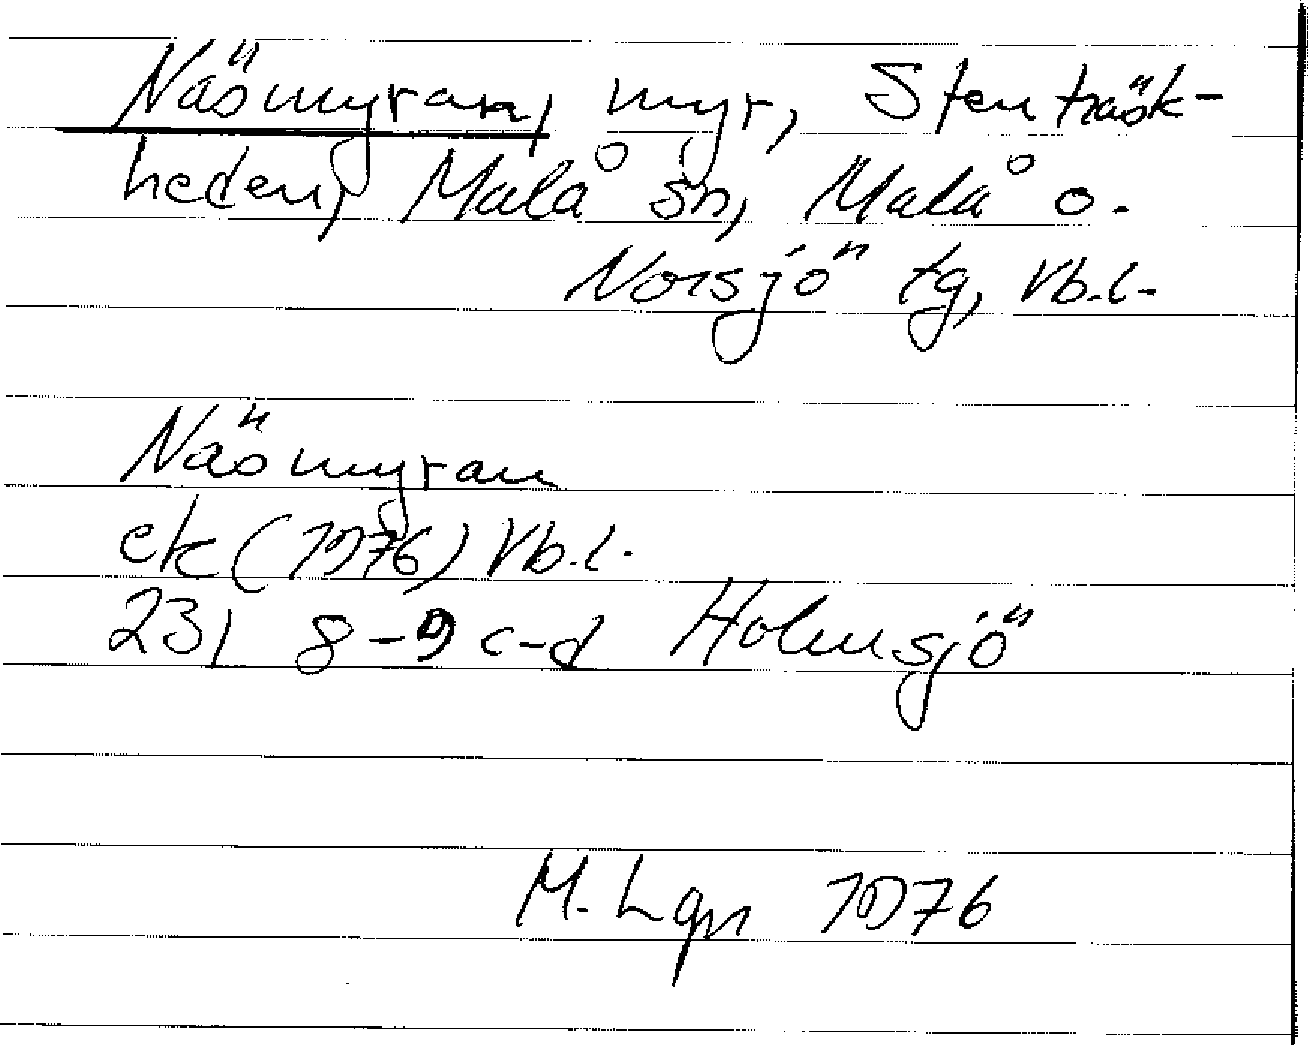 Näsmyran, myr, Stenträsk-
heden, Malå sn, Malå o.
Norsjö tg, Vb.l.
Näsmyran
ek (1976) Vb.l.
23I 8-9 c-d Holmsjö
M. Lgn 1976